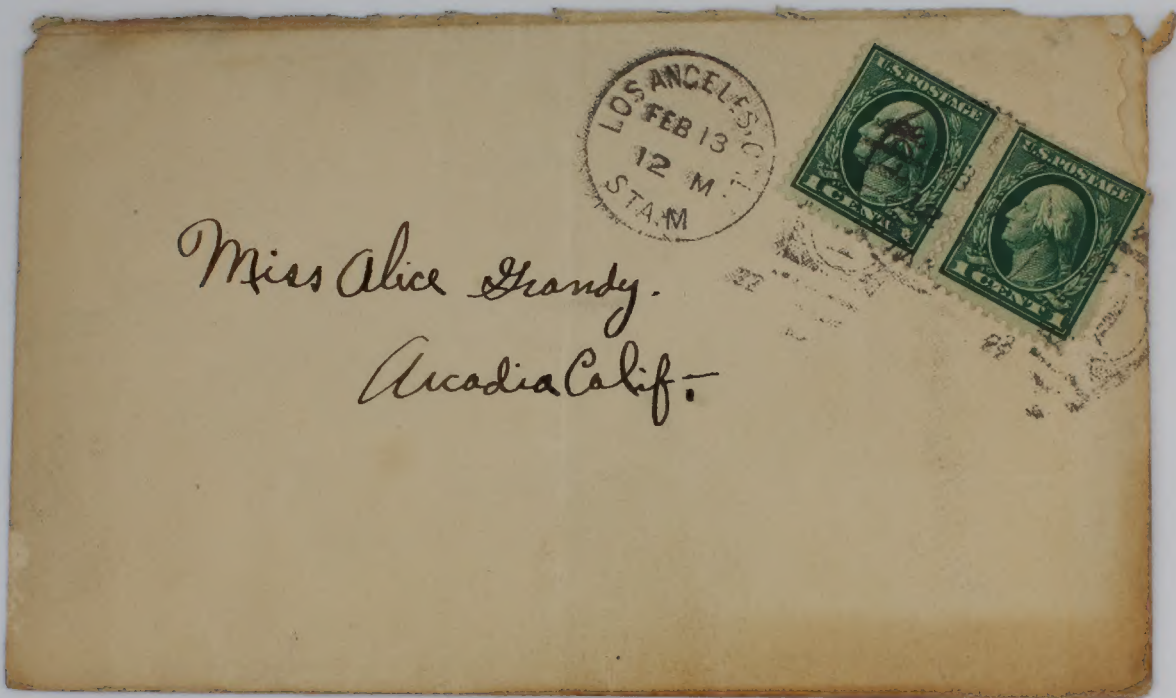 LOS ANGELES, CAL.
FEB 13
12 M
STA. M
U.S. POSTAGE
1 CENT 1
U.S. POSTAGE
1 CENT 1
Miss Alice Grandy.
Arcadia Calif.-